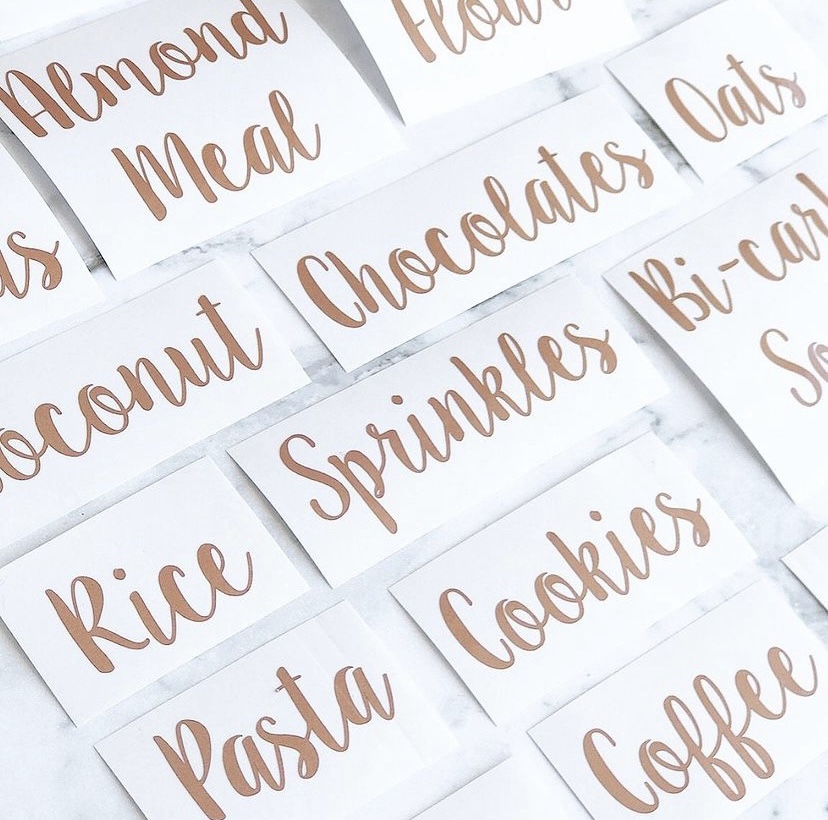 Almond
Meal
Flour
Oats
Chocolates
Bi-carb
So
oconut
Sprinkles
Rice
Cookies
Pasta
Coffee